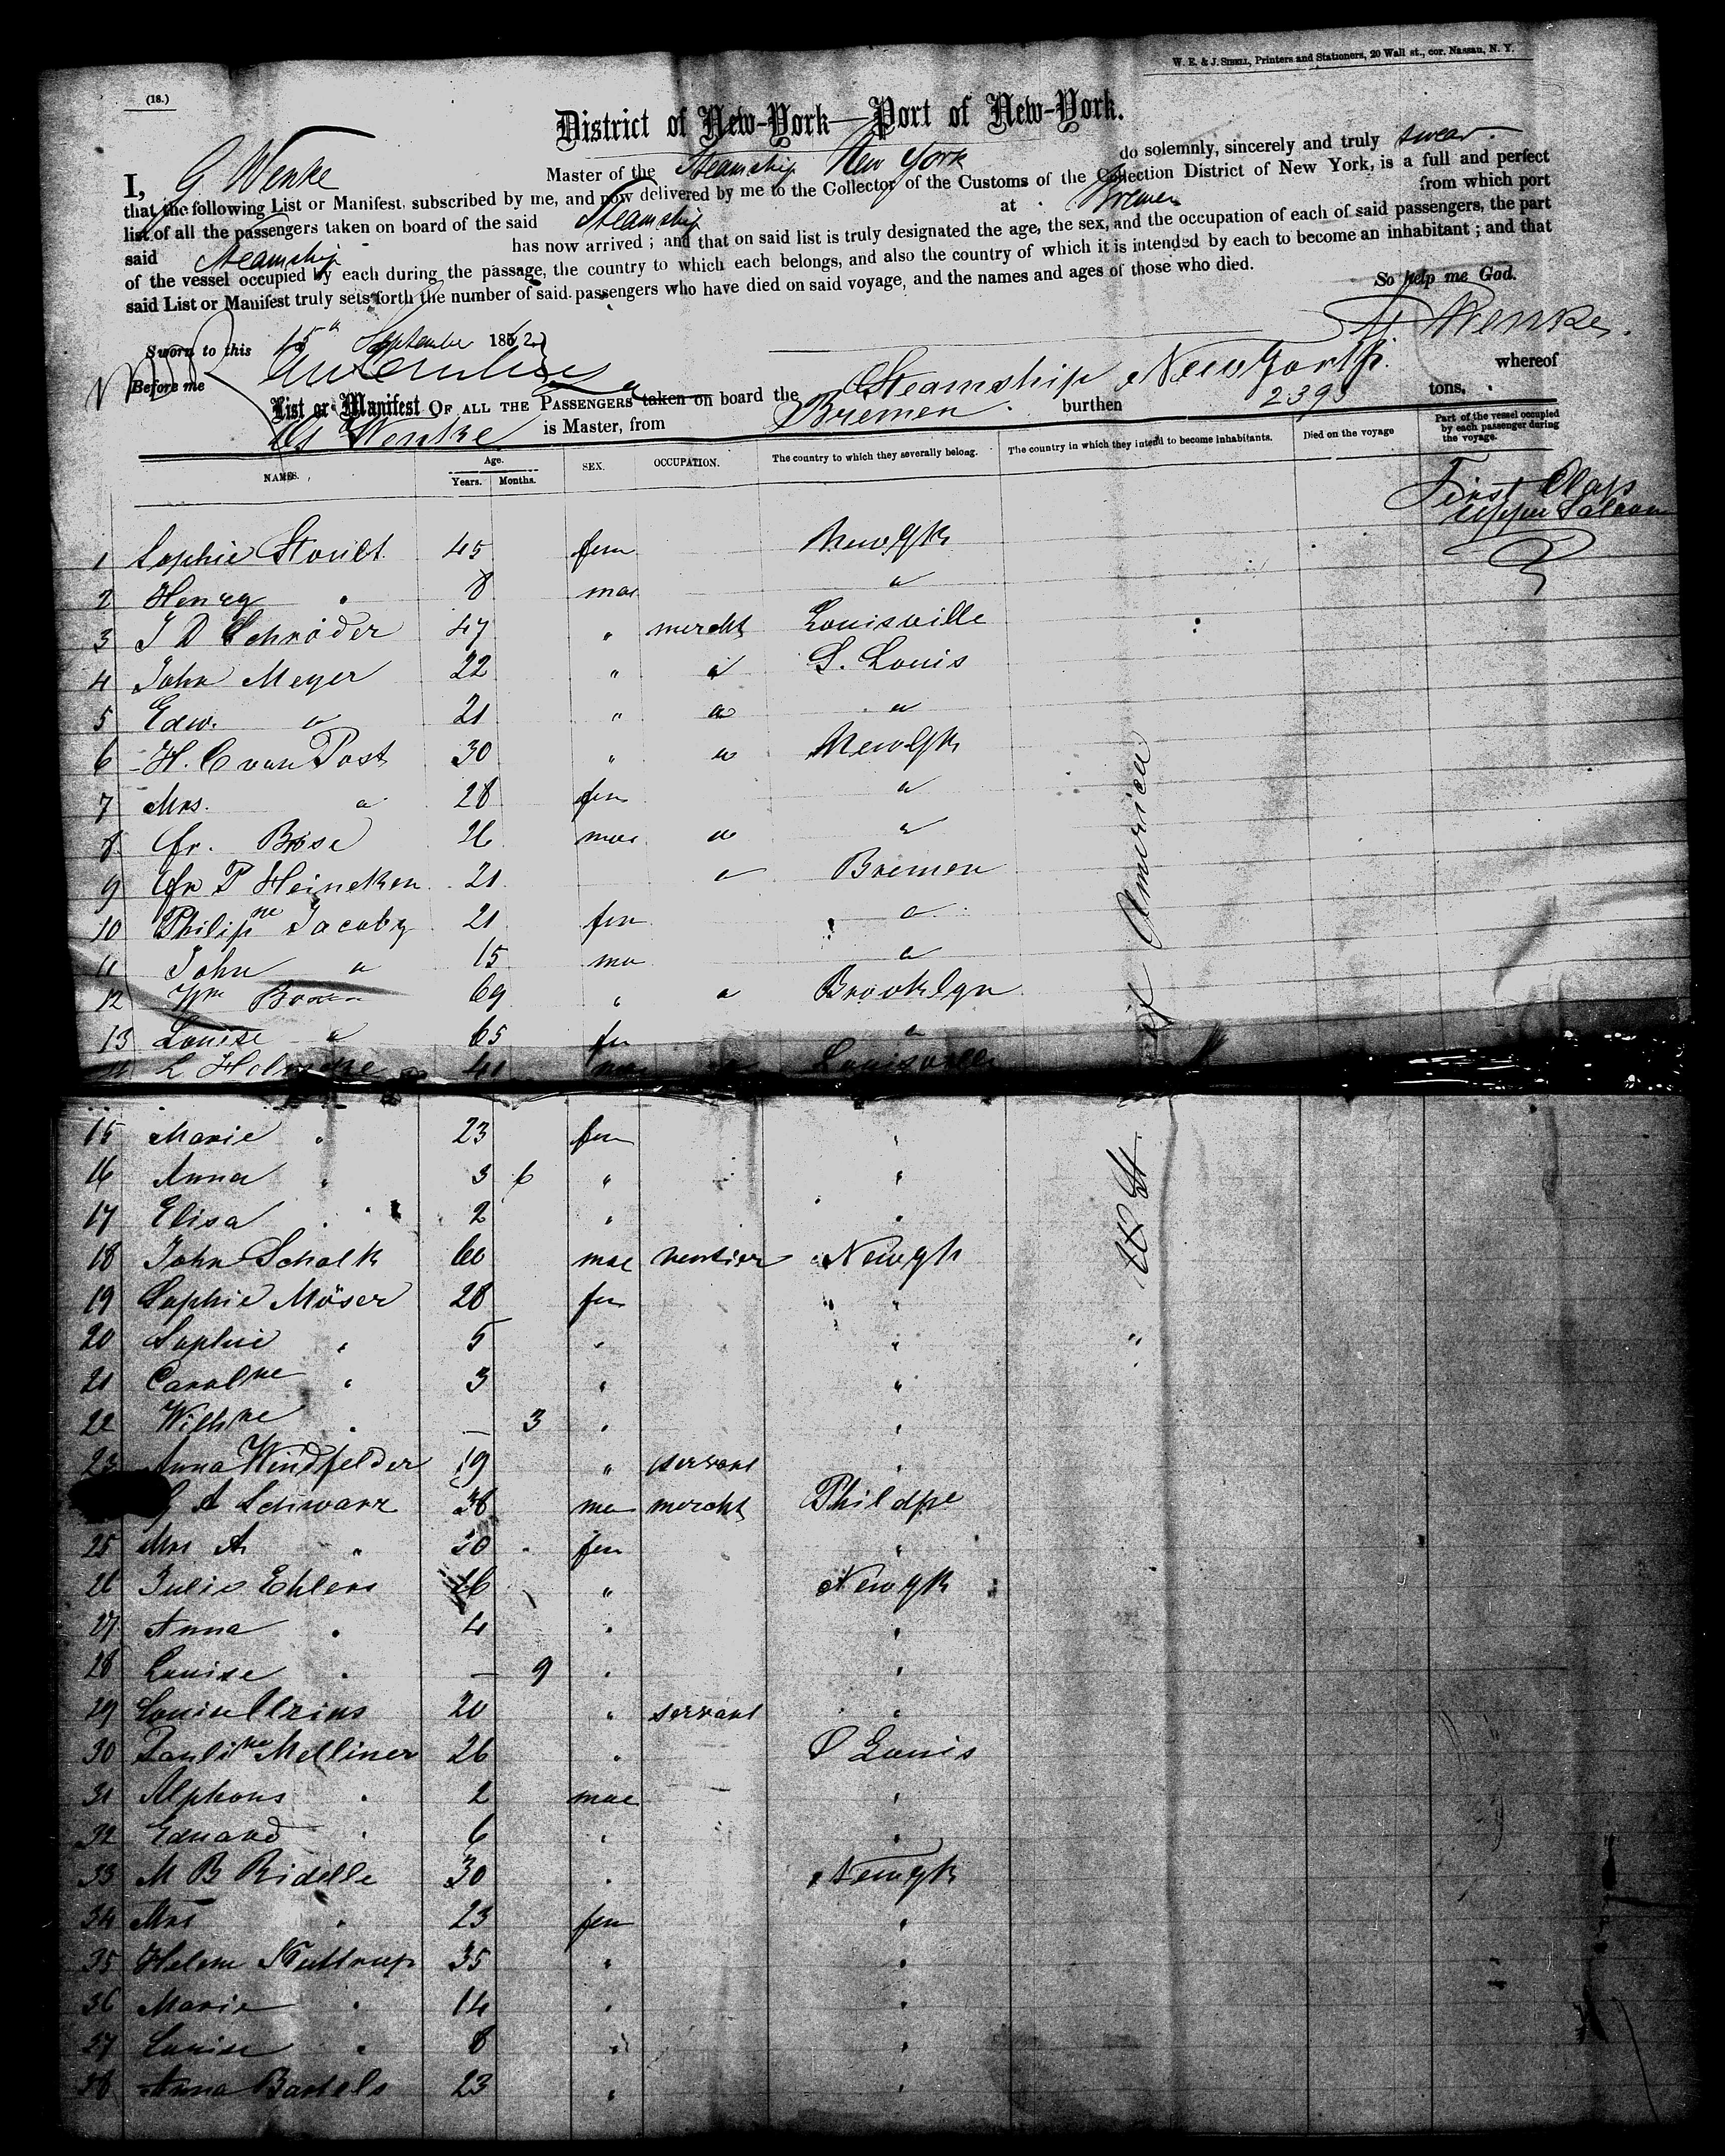 W. E. & J. SIBELL, Printers and Stationers, 20 Wall st., cor. Nassau, N. Y.
(18.)
District of New-York—Port of New-York.
I, G Wenke Master of the Steamship New York do solemnly, sincerely and truly swear
that the following List or Manifest, subscribed by me, and now delivered by me to the Collector of the Customs of the Collection District of New York, is a full and perfect
list of all the passengers taken on board of the said Steamship at Bremen from which port
said Steamship has now arrived; and that on said list is truly designated the age, the sex, and the occupation of each of said passengers, the part
of the vessel occupied by each during the passage, the country to which each belongs, and also the country of which it is intended by each to become an inhabitant; and that
said List or Manifest truly sets forth the number of said passengers who have died on said voyage, and the names and ages of those who died.
So help me God.
Sworn to this 15th September 1862
G Wenke.
Before me
List or Manifest OF ALL THE PASSENGERS taken on board the Steamship New York whereof
G Wenke is Master, from Bremen burthen 2398 tons.
NAMES. Age. Years. Months. SEX. OCCUPATION. The country to which they severally belong. The country in which they intend to become inhabitants. Died on the voyage Part of the vessel occupied by each passenger during the voyage.
First Class
upper Saloon
1 Sophie 45 fem NewYk
2 Henry " 8 mas "
3 J D Schröder 47 " mercht Louisville
4 John Meyer 22 " " S. Louis
5 Edw. " 21 " " "
6 H. C van Post 30 " " NewYk
7 Mrs. " 28 fem "
8 Fr. Bose 26 mas " "
9 Fr P Heineken 21 " Bremen
10 Philipne Jacoby 21 fem "
11 John " 15 ma "
12 Wm 69 " " Brooklyn
13 Louise " 65 fem "
14 L 41 mas " Louisville
15 Marie " 23 fem "
16 Anna " 3 6 " "
17 Elisa " 2 " "
18 John Schalk 60 mae rentier NewYk
19 Sophie Möser 28 fem "
20 Sophie " 5 " "
21 Carolne " 3 " "
22 Wilhne " — 3 " "
23 Anna Windfelder 19 " servant "
A Schwarz 38 ma mercht Phildpe
25 Mrs A. " 20 fem "
26 Julie Ehlers 26 " NewYk
27 Anna " 4 " "
28 Louise " — 9 " "
29 Louise 20 " servant "
30 Pauline Melliner 26 " S Louis
31 Alphons " 2 mae "
32 Eduard " 6 " "
33 M B Ridelle 30 " NewYk
34 Mrs " 23 fem "
35 Helene 35 " "
36 Marie " 14 " "
37 Louise " 8 " "
38 Anna Bartels 23 " "
of America